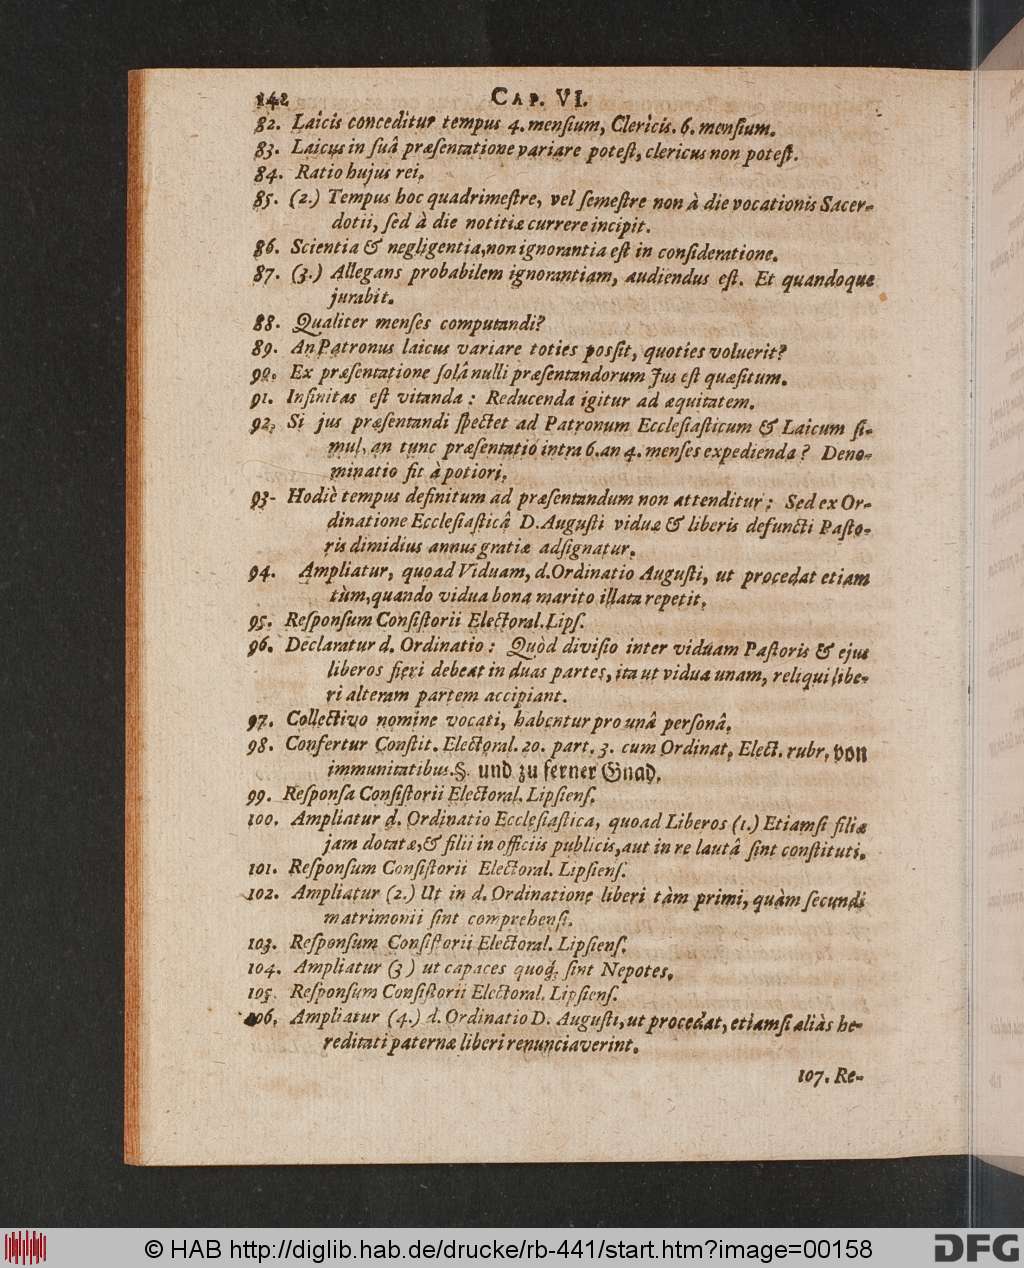 142 CAP. VI.
82. Laicis conceditur tempus 4. menſium, Clericis. 6. menſium.
83. Laicus in ſuâ præſentatione variare poteſt, clericus non poteſt.
84. Ratio hujus rei.
85. (2.) Tempus hoc quadrimeſtre, vel ſemeſtre non à die vocationis Sacer-
dotii, ſed à die notitiæ currere incipit.
86. Scientia & negligentia, non ignorantia eſt in conſideratione.
87. (3.) Allegans probabilem ignorantiam, audiendus eſt. Et quandoque
jurabit.
88. Qualiter menſes computandi?
89. An Patronus laicus variare toties poſſit, quoties voluerit?
90. Ex præſentatione ſolâ nulli præſentandorum Jus eſt quæſitum.
91. Infinitas eſt vitanda: Reducenda igitur ad æquitatem.
92. Si jus præſentandi ſpectet ad Patronum Eccleſiaſticum & Laicum ſi-
mul, an tunc præſentatio intra 6. an 4. menſes expedienda? Deno-
minatio fit à potiori.
93- Hodiè tempus definitum ad præſentandum non attenditur; Sed ex Or-
dinatione Eccleſiaſticâ D. Auguſti viduæ & liberis defuncti Paſto-
ris dimidius annus gratiæ adſignatur.
94. Ampliatur, quoad Viduam, d. Ordinatio Auguſti, ut procedat etiam
tùm, quando vidua bona marito illata repetit.
95. Reſponſum Conſiſtorii Electoral. Lipſ.
96. Declaratur d. Ordinatio: Quòd diviſio inter viduam Paſtoris & ejus
liberos fieri debeat in duas partes, ita ut vidua unam, reliqui libe-
ri alteram partem accipiant.
97. Collectivo nomine vocati, habentur pro unâ perſonâ.
98. Confertur Conſtit. Electoral. 20. part. 3. cum Ordinat. Elect. rubr. von
immunitatibus. §. und zu ferner Gnad.
99. Reſponſa Conſiſtorii Electoral. Lipſienſ.
100. Ampliatur d. Ordinatio Eccleſiaſtica, quoad Liberos (1.) Etiamſi filiæ
jam dotatæ, & filii in officiis publicis, aut in re lautâ ſint conſtituti.
101. Reſponſum Conſiſtorii Electoral. Lipſienſ.
102. Ampliatur (2.) Ut in d. Ordinatione liberi tàm primi, quàm ſecundi
matrimonii ſint comprehenſi.
103. Reſponſum Conſiſtorii Electoral. Lipſienſ.
104. Ampliatur (3) ut capaces quoq; ſint Nepotes.
105. Reſponſum Conſiſtorii Electoral. Lipſienſ.
106. Ampliatur (4.) d. Ordinatio D. Auguſti, ut procedat, etiamſi aliàs he-
reditati paternæ liberi renunciaverint.
107. Re-
© HAB http://diglib.hab.de/drucke/rb-441/start.htm?image=00158
DFG